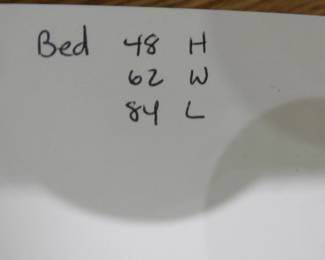 Bed 48 H
62 W
84 L